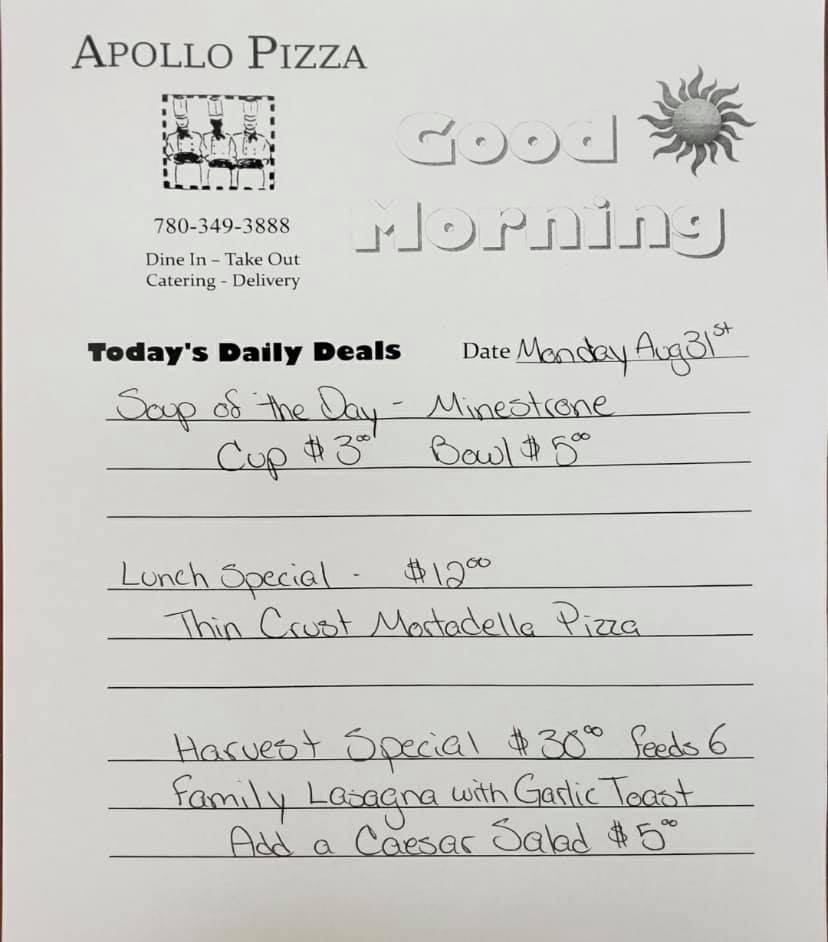 APOLLO PIZZA
Good
Morning
780-349-3888
Dine In – Take Out
Catering - Delivery
Today's Daily Deals Date Monday Aug 31st
Soup of the Day - Minestrone
Cup $3.00 Bowl $5.00
Lunch Special - $12.00
Thin Crust Mortadella Pizza
Harvest Special $30.00 feeds 6
Family Lasagna with Garlic Toast
Add a Caesar Salad $5.00